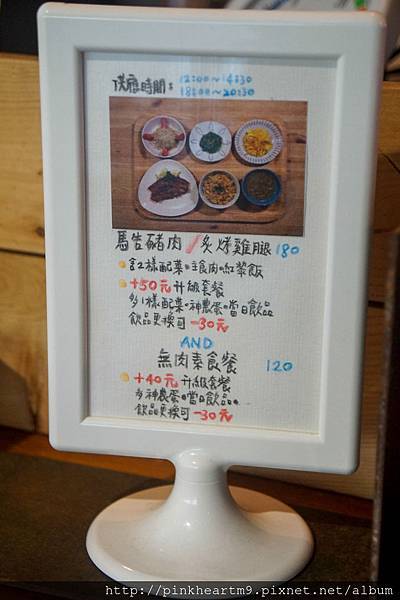 供應時間: 12:00~14:30
18:00~20:30
馬告豬肉/炙烤雞腿 180
含2樣配菜。主食肉。紅藜飯
+50元升級套餐
多1樣配菜。神農蛋。當日飲品
飲品更換可-30元
AND
無肉素食餐 120
+40元升級套餐
多神農蛋。當日飲品。
飲品更換可-30元
http://pinkheartm9.pixnet.net/album